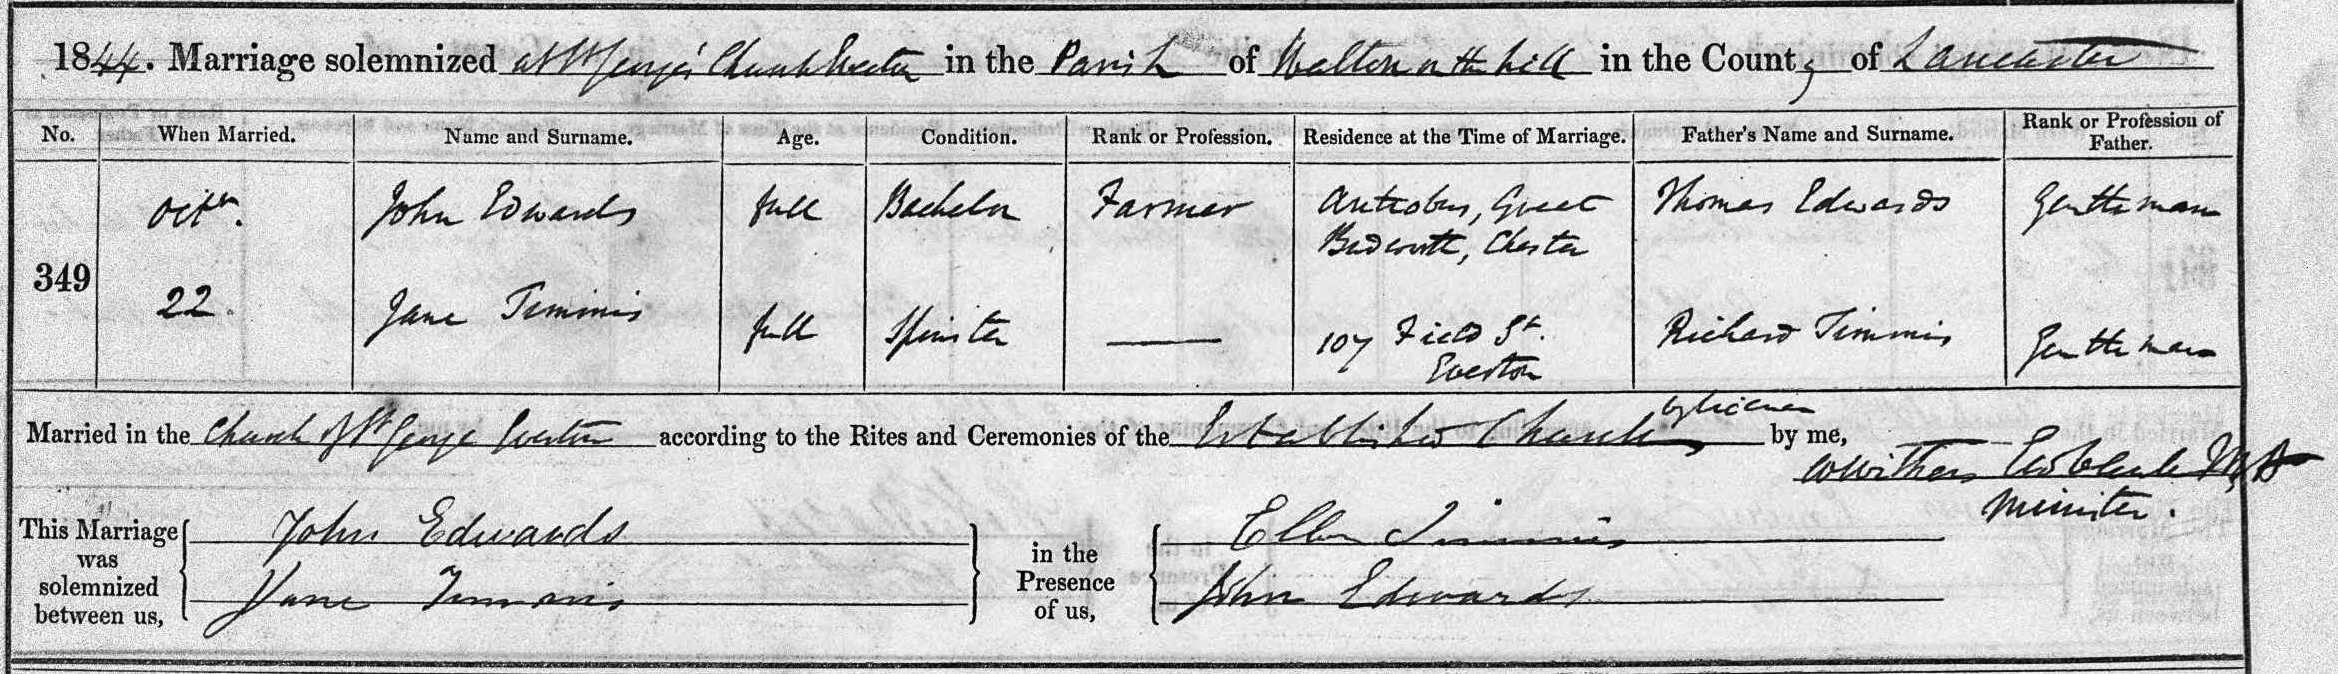 1844. Marriage solemnized at St George's Church Everton in the Parish of Walton on the hill in the County of Lancaster
No. When Married. Name and Surname. Age. Condition. Rank or Profession. Residence at the Time of Marriage. Father's Name and Surname. Rank or Profession of Father.
349
Octr. John Edwards full Bachelor Farmer Antrobus, Great Budworth, Chester Thomas Edwards Gentleman
22. Jane Timmis full Spinster —— 107 Field St. Everton Richard Timmis Gentleman
Married in the Church of St George Everton according to the Rites and Ceremonies of the Established Church by licence by me,
W Withers M,A
Minister.
This Marriage was solemnized between us, John Edwards Jane Timmis in the Presence of us, Ellen Timmis John Edwards